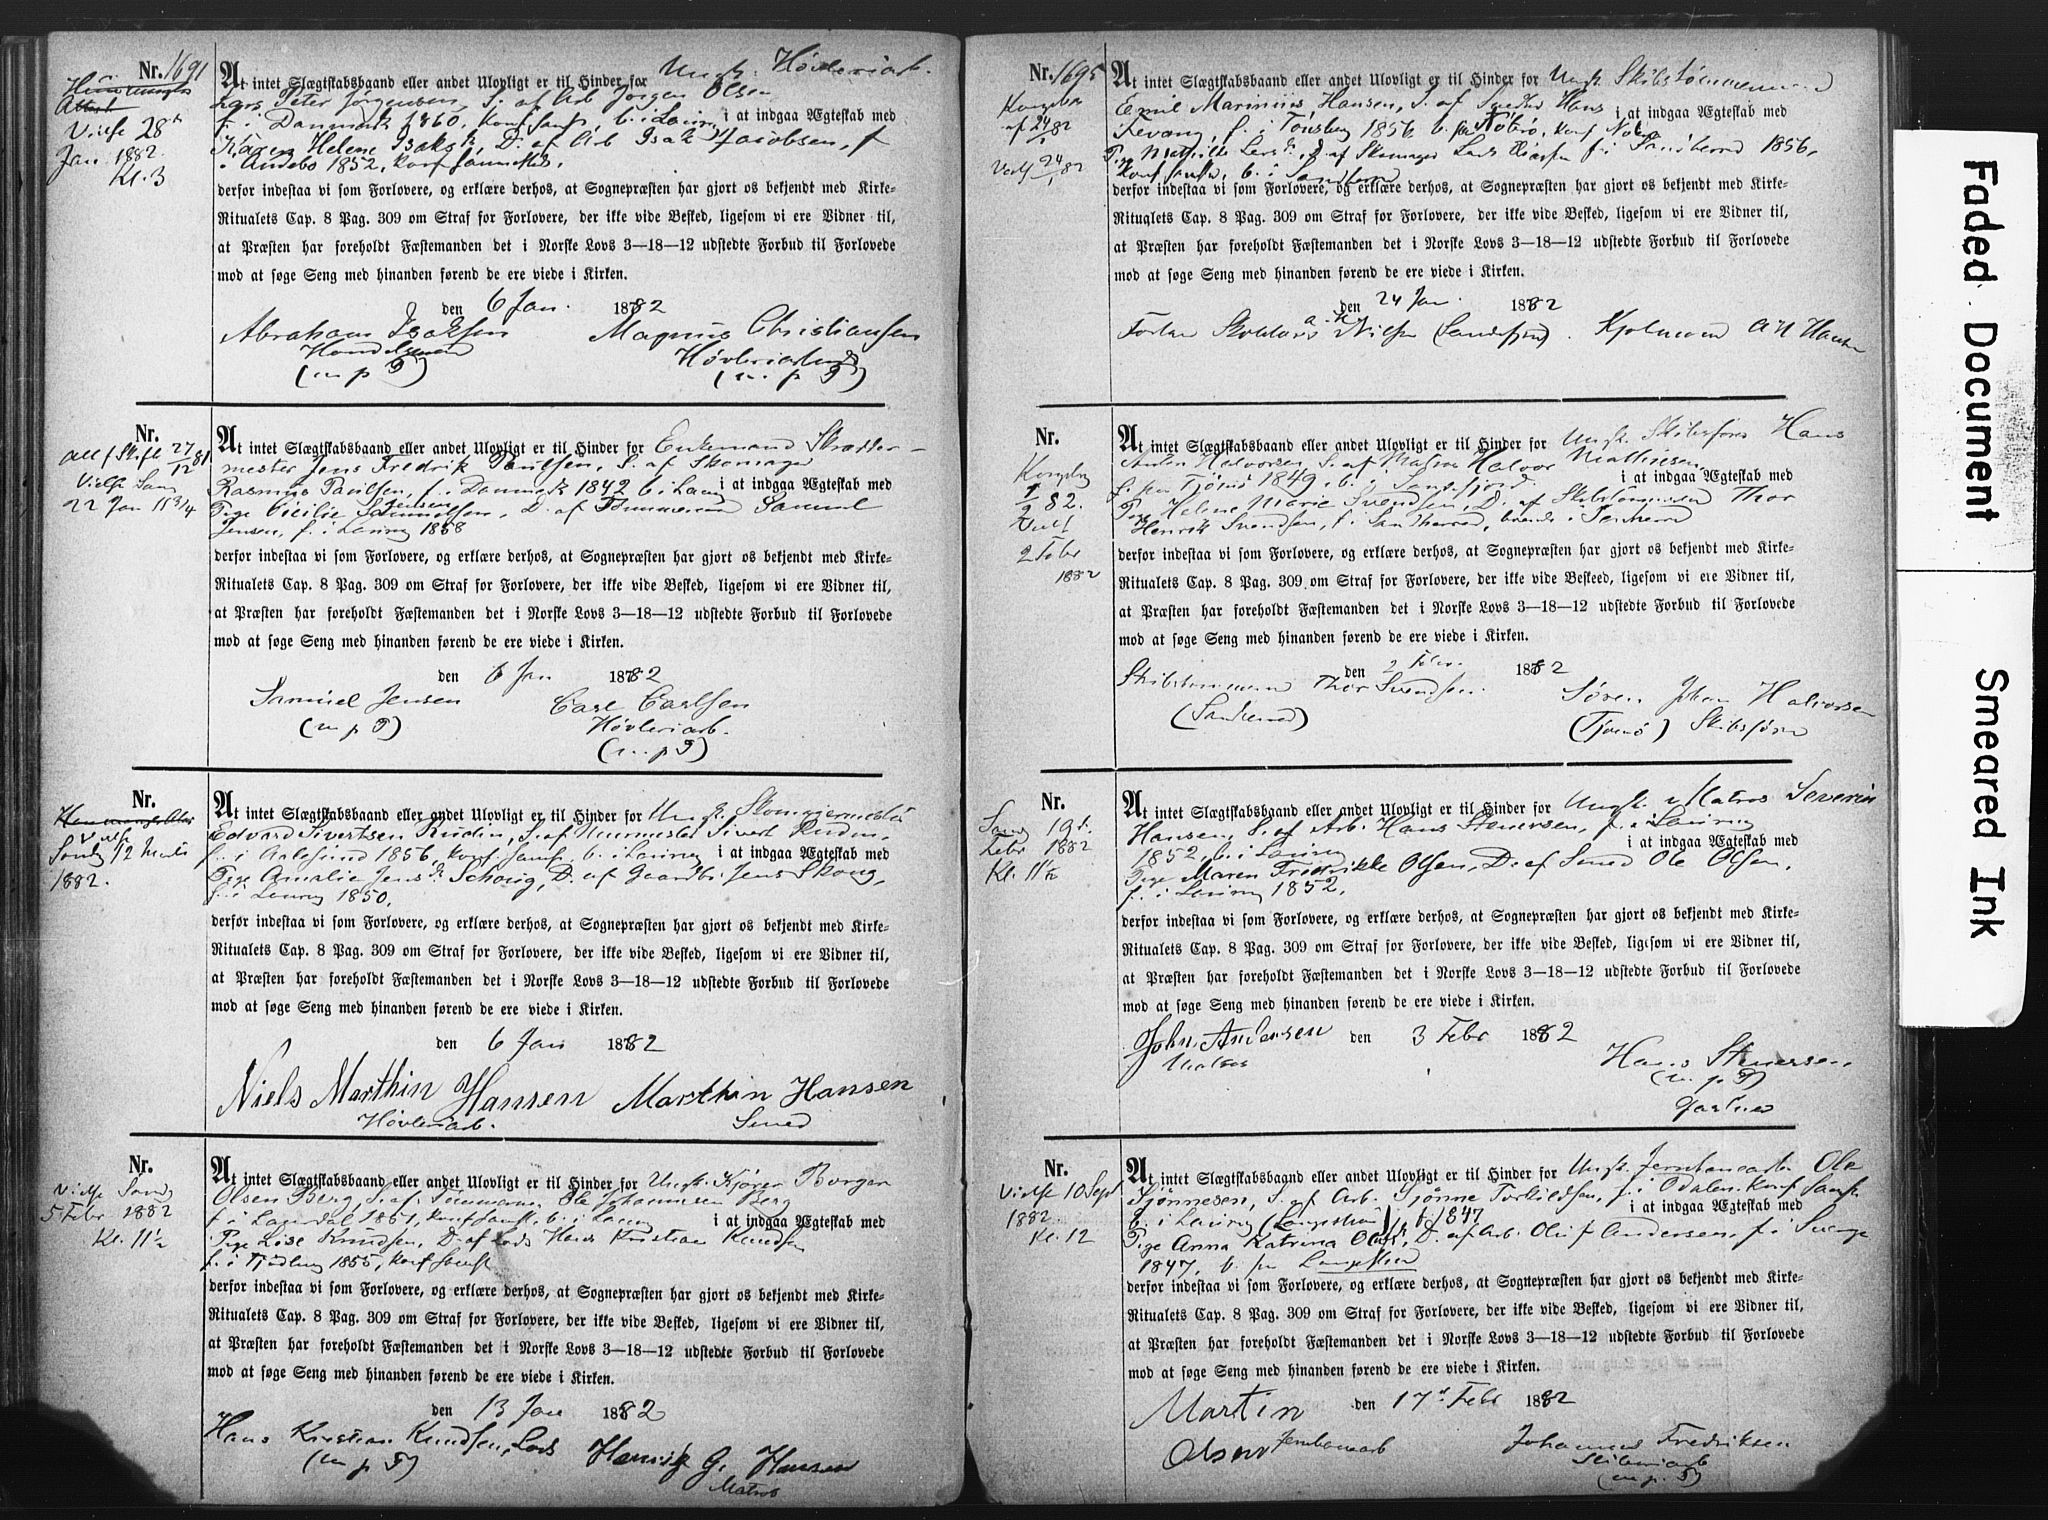 Nr. 1691
Vielse 28de
Jan 1882.
Kl. 3
At intet Slægtskabsbaand eller andet Ulovligt er til Hinder for Ungk. Høvleriarb.
Lars Peter Jørgensen, S. af Arb Jørgen Olsen
f. i Danmark 1860, konf. samst, b. i Laurv i at indgaa Ægteskab med
Karen Helene Isaksd, D. af Arb Isak Jacobsen, f
i Andebo 1852, konf sammesteds.
derfor indestaa vi som Forlovere, og erklære derhos, at Sognepræsten har gjort os bekjendt med Kirke-
Ritualets Cap. 8 Pag. 309 om Straf for Forlovere, der ikke vide Besked, ligesom vi ere Vidner til,
at Præsten har foreholdt Fæstemanden det i Norske Lovs 3—18—12 udstedte Forbud til Forlovede
mod at søge Seng med hinanden førend de ere viede i Kirken.
den 6 Jan. 1882
Abraham Isaksen Magnus Christiansen
Handelsmand Høvleriarbeid
(m p P) (m. p P)
Nr.
27/12 81
Vielse Sønd
22 Jan 11 3/4
At intet Slægtskabsbaand eller andet Ulovligt er til Hinder for Enkemand Skrædder-
mester Jens Fredrik Paulsen, S. af Skomager
Rasmus Paulsen, f. i Danmark 1842 b. i Laurv i at indgaa Ægteskab med
Pige Cicilie Jensen Samuelsen, D. af Tømmermand Samuel
Jensen, f. i Laurvig 1858
derfor indestaa vi som Forlovere, og erklære derhos, at Sognepræsten har gjort os bekjendt med Kirke-
Ritualets Cap. 8 Pag. 309 om Straf for Forlovere, der ikke vide Besked, ligesom vi ere Vidner til,
at Præsten har foreholdt Fæstemanden det i Norske Lovs 3—18—12 udstedte Forbud til Forlovede
mod at søge Seng med hinanden førend de ere viede i Kirken.
den 6 Jan 1882
Samuel Jensen Carl Carlsen
(m p P) Høvleriarb.
(m. p P)
Nr.
Vielse
Søndg 12 Marts
1882.
At intet Slægtskabsbaand eller andet Ulovligt er til Hinder for Ungk. Skomagermester
Edvard Sivertsen Rudin, S. af Murmester Sivert Rudin,
f. i Aalesund 1856, konf. samst. b. i Laurvig i at indgaa Ægteskab med
Pige Amalie Jensd. Schoug, D. af Gaardbr. Jens Skoug,
f. i Laurvig 1850,
derfor indestaa vi som Forlovere, og erklære derhos, at Sognepræsten har gjort os bekjendt med Kirke-
Ritualets Cap. 8 Pag. 309 om Straf for Forlovere, der ikke vide Besked, ligesom vi ere Vidner til,
at Præsten har foreholdt Fæstemanden det i Norske Lovs 3—18—12 udstedte Forbud til Forlovede
mod at søge Seng med hinanden førend de ere viede i Kirken.
den 6 Jan 1882
Niels Marthin Hansen Marthin Hansen
Høvleriarb. Smed
Nr.
Vielse Søndg
5 Febr 1882
Kl. 11½
At intet Slægtskabsbaand eller andet Ulovligt er til Hinder for Ungk. Kjører Borger
Olsen Berg, S. af Tømmerm. Ole Johannesen Berg
f. i Laurdal 1861, konf samst, b. i Laurvig i at indgaa Ægteskab med
Pige Lise Knudsen, D. af Lods Hans Kristian Knudsen
f. i Tjødling 1855, konf samst
derfor indestaa vi som Forlovere, og erklære derhos, at Sognepræsten har gjort os bekjendt med Kirke-
Ritualets Cap. 8 Pag. 309 om Straf for Forlovere, der ikke vide Besked, ligesom vi ere Vidner til,
at Præsten har foreholdt Fæstemanden det i Norske Lovs 3—18—12 udstedte Forbud til Forlovede
mod at søge Seng med hinanden førend de ere viede i Kirken.
den 13 Jan 1882
Hans Kristian Knudsen, Lods Henrik G. Hansen
(m p P) Matros
Nr. 1695
Kongebr
af 24/1 82
Viels 24/1 82
At intet Slægtskabsbaand eller andet Ulovligt er til Hinder for Ungk. Skibstømmermand
Emil Marinius Hansen, S. af Hans
Levang, f. i Tønsberg 1856 b. paa Nøterø, konf Nøterø i at indgaa Ægteskab med
Pige Mathilde Larsd, D. af Skomager Lars f. i Sandherred 1856,
konf samst, b. i Sandherred
derfor indestaa vi som Forlovere, og erklære derhos, at Sognepræsten har gjort os bekjendt med Kirke-
Ritualets Cap. 8 Pag. 309 om Straf for Forlovere, der ikke vide Besked, ligesom vi ere Vidner til,
at Præsten har foreholdt Fæstemanden det i Norske Lovs 3—18—12 udstedte Forbud til Forlovede
mod at søge Seng med hinanden førend de ere viede i Kirken.
den 24 Jan. 1882
Nilsen (Sandefjord). Kjøbmand A H Hansen
Nr.
Kongebr
1/2 82.
Viels
2 Febr
1882
At intet Slægtskabsbaand eller andet Ulovligt er til Hinder for Ungk. Skibsfører Hans
Anton Halvorsen, S. af Matros Halvor Mathiesen
f. paa Tjømø 1849, b. i Sandefjord i at indgaa Ægteskab med
Pige Helene Marie Svendsen, D. af Skibstømmermand Thor
Henrik Svendsen, f. i Sandherred, boende i Sandherred
derfor indestaa vi som Forlovere, og erklære derhos, at Sognepræsten har gjort os bekjendt med Kirke-
Ritualets Cap. 8 Pag. 309 om Straf for Forlovere, der ikke vide Beskeed, ligesom vi ere Vidner til,
at Præsten har foreholdt Fæstemanden det i Norske Lovs 3—18—12 udstedte Forbud til Forlovede
mod at søge Seng med hinanden førend de ere viede i Kirken.
den 2 Febr. 1882
Skibstømmermand Thor Svendsen. Søren Johan Halvorsen
(Sandherred) (Tjømø) Skibsfører
Nr.
Søndg 19de
Febr 1882
Kl. 11½
At intet Slægtskabsbaand eller andet Ulovligt er til Hinder for Ungk. Matros Severin
Hansen, S. af Arb. Hans Stenersen, f. i Laurvig
1852, b. i Laurvig i at indgaa Ægteskab med
Pige Maren Fredrikke Olsen, D. af Smed Ole Olsen,
f. i Laurvig 1852,
derfor indestaa vi som Forlovere, og erklære derhos, at Sognepræsten har gjort os bekjendt med Kirke-
Ritualets Cap. 8 Pag. 309 om Straf for Forlovere, der ikke vide Besked, ligesom vi ere Vidner til,
at Præsten har foreholdt Fæstemanden det i Norske Lovs 3—18—12 udstedte Forbud til Forlovede
mod at søge Seng med hinanden førend de ere viede i Kirken.
John Andersen den 3 Febr 1882
Matros Hans Stenersen,
(m. p P)
Gartner
Nr.
Vielse 10 Sept
1882
Kl. 12
At intet Slægtskabsbaand eller andet Ulovligt er til Hinder for Ungk. Jernbanearb. Ole
Tjønnesen, S. af Arb. Tjønne Torkildsen, f. i Odalen konf samst
b. i Laurvig (Langestrand), f 1847 i at indgaa Ægteskab med
Pige Anna Katrina Olsd, D. af Arb. Oluf Andersen, f. i Sverige
1847, b. paa Langestrand
derfor indestaa vi som Forlovere, og erklære derhos, at Sognepræsten har gjort os bekjendt med Kirke-
Ritualets Cap. 8 Pag. 309 om Straf for Forlovere, der ikke vide Besked, ligesom vi ere Vidner til,
at Præsten har foreholdt Fæstemanden det i Norske Lovs 3—18—12 udstedte Forbud til Forlovede
mod at søge Seng med hinanden førend de ere viede i Kirken.
Martin den 17de Febr 1882
Olsen Jernbanearb Johannes Fredriksen
(m. p. P)
Faded Document
Smeared Ink